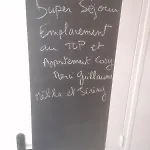 Super Séjour
Emplacement
au TOP et
Appartement Cosy
Merci Guillaume
et